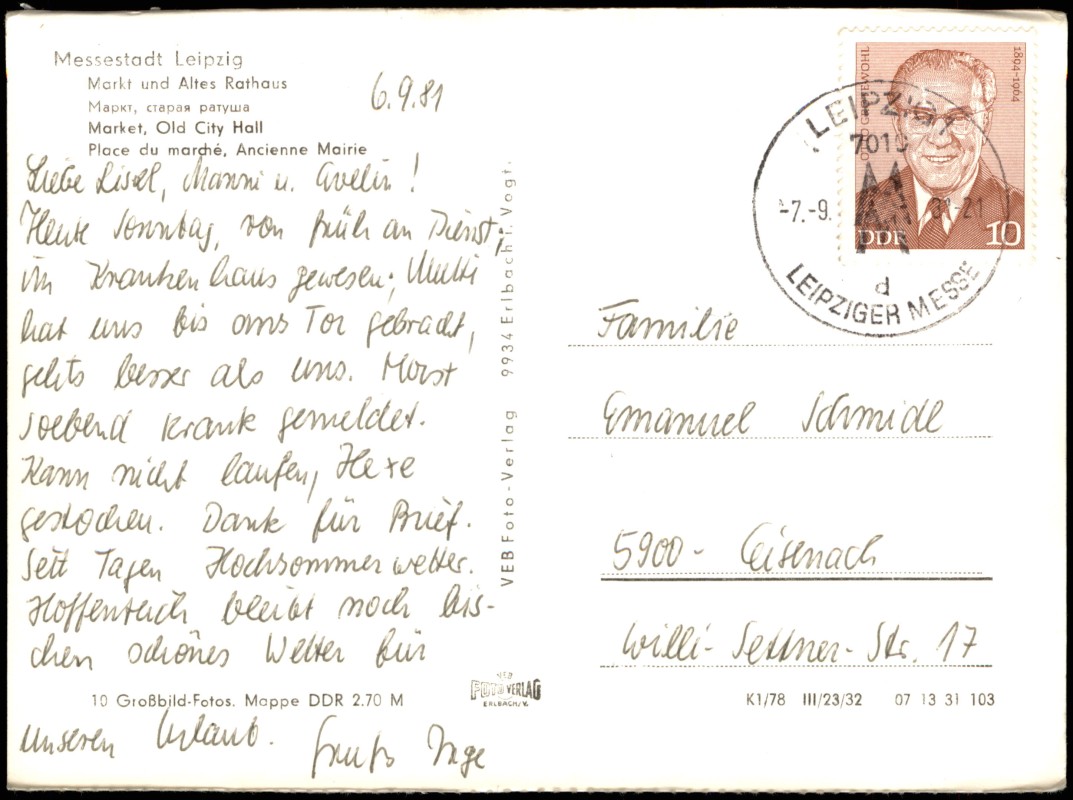 Messestadt Leipzig
Markt und Altes Rathaus
Маркт, старая ратуша
Market, Old City Hall
Place du marché, Ancienne Mairie
6.9.81
Liebe Lissl, Manni u. Evelin!
Heute Sonntag, von früh an Dienst
im Krankenhaus gewesen, Mutti
hat uns bis ans Tor gebracht,
gehts besser als uns. Horst
soebend krank gemeldet.
Kann nicht laufen, Hexe
gestochen. Dank für Brief.
Seit Tagen Hochsommerwetter.
Hoffentlich bleibt noch bis-
chen schönes Wetter für
10 Großbild-Fotos. Mappe DDR 2.70 M
unseren Urlaub. Gruß Inge
VEB Foto-Verlag 9934 Erlbach i. Vogt.
VEB
FOTO VERLAG
ERLBACH/V.
OTTO GROTEWOHL
1894-1964
DDR 10
LEIPZIG 1
7010
-7.-9. 81-21
d
LEIPZIGER MESSE
Familie
Emanuel Schmidl
5900 - Eisenach
Willi-Settner-Str. 17
K1/78 III/23/32 07 13 31 103